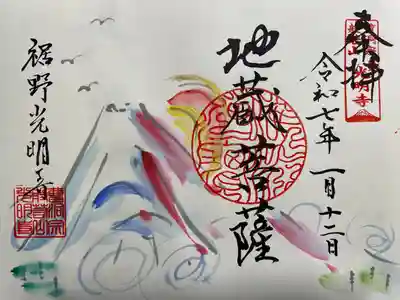 奉拝
令和七年 一月十二日
地蔵菩薩
裾野光明寺